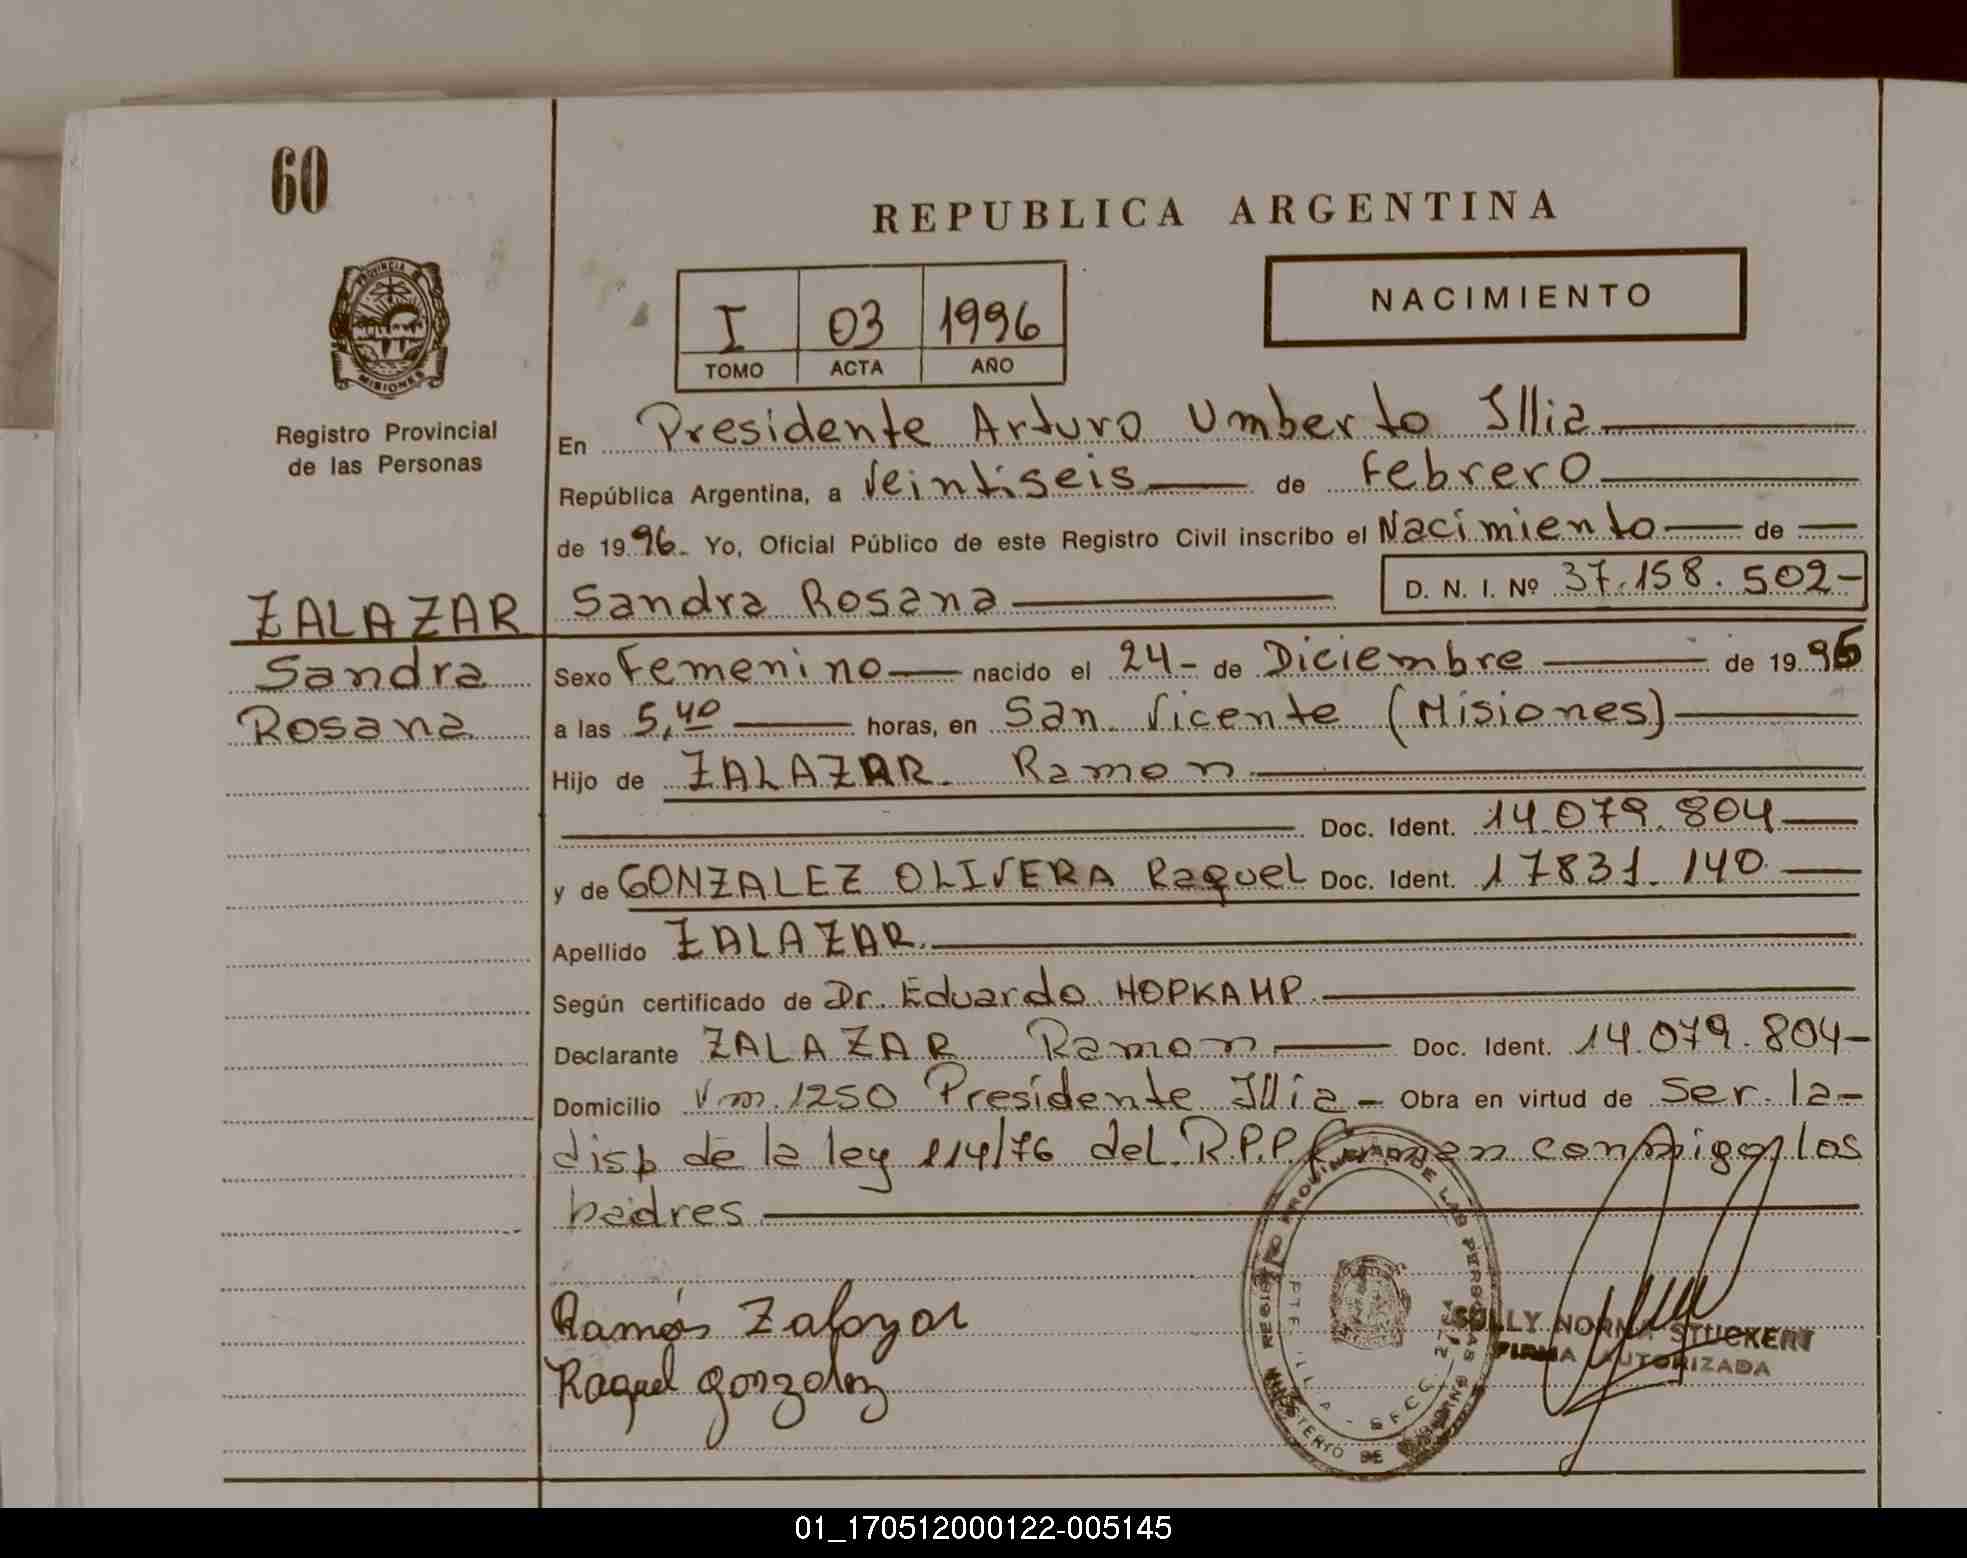 60
REPUBLICA ARGENTINA
PROVINCIA DE
MISIONES
NACIMIENTO
I 03 1996
TOMO ACTA AÑO
Registro Provincial
de las Personas
En Presidente Arturo Umberto Illia
República Argentina, a Veintiseis de Febrero
de 1996. Yo, Oficial Público de este Registro Civil inscribo el Nacimiento de
ZALAZAR Sandra Rosana D. N. I. Nº 37.158.502-
Sandra Sexo Femenino nacido el 24- de Diciembre de 1995
Rosana a las 5,40 horas, en San Vicente (Misiones)
Hijo de ZALAZAR Ramon
Doc. Ident. 14.079.804
y de GONZALEZ OLIVERA Raquel Doc. Ident. 17831.140
Apellido ZALAZAR
Según certificado de Dr. Eduardo HOPKAMP
Declarante ZALAZAR Ramon Doc. Ident. 14.079.804-
Domicilio 1250 Presidente Illia - Obra en virtud de Ser. la-
disp de la ley 114/76 del R.P.P. Firman conmigo los
padres
Ramón Zalazar
Raquel gonzalez
REGISTRO PROVINCIAL DE LAS PERSONAS
MINISTERIO DE GOBIERNO
PTE. ILLIA
SULLY NORMA STUCKERT
FIRMA AUTORIZADA
01_170512000122-005145